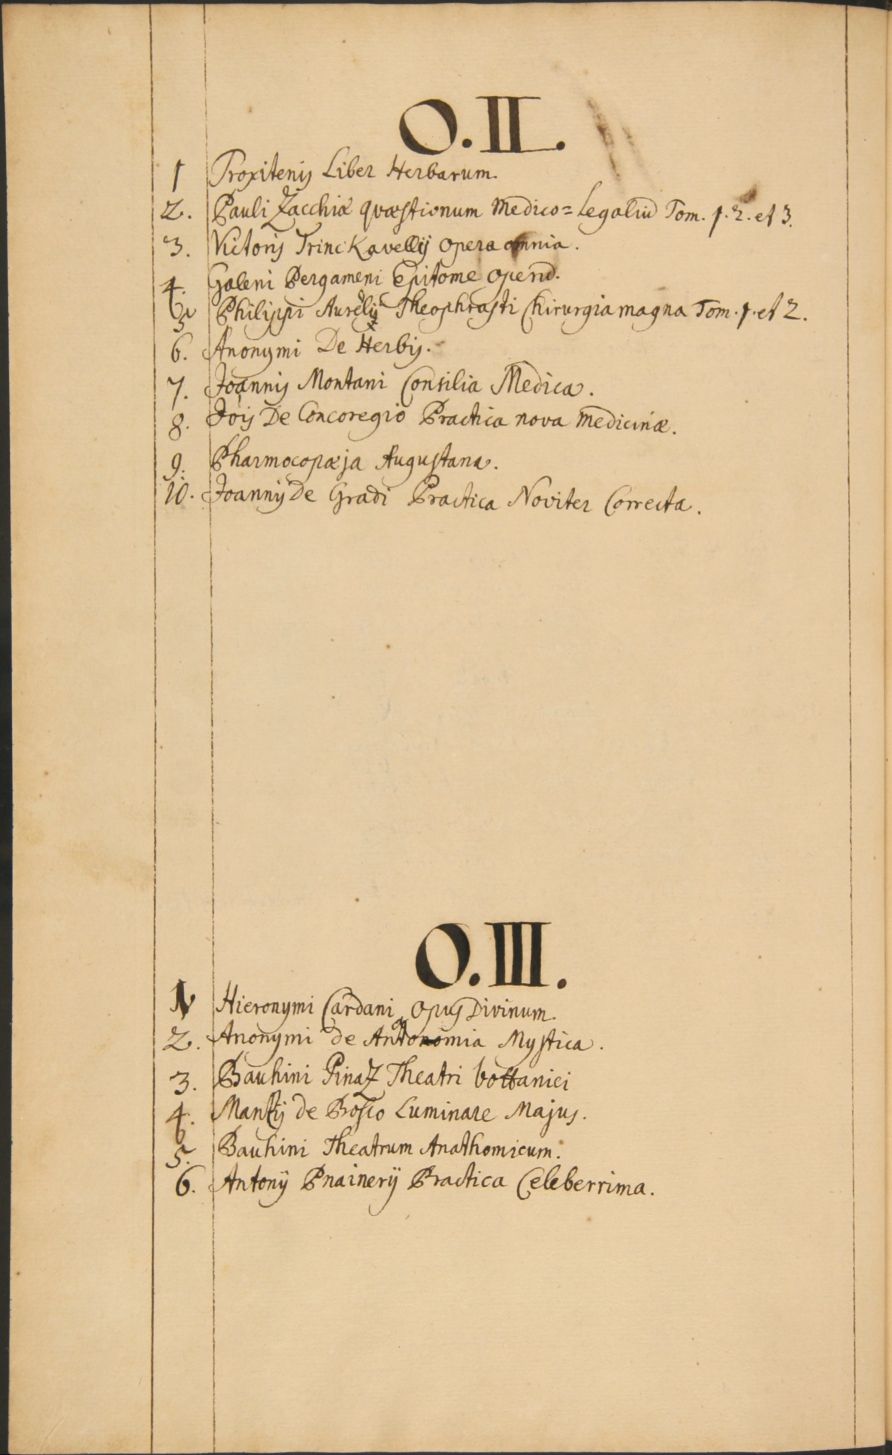 O.II.
1 Troxitenij Liber Herbarum.
2. Pauli Zacchiæ quæstionum Medico=Legaliū Tom. 1. 2. et 3.
3. Victorij Trinc Kavellij opera omnia.
4. Galeni Pergameni Epitome operū.
5 Philippi Aurelij Theophrasti Chirurgia magna Tom. 1. et 2.
6. Anonymi De Herbis.
7. Joannis Montani Consilia Medica.
8. Jois De Concoregio Practica nova medicinæ.
9. Pharmocopæja Augustana.
10. Joannis De Gradi Practica Noviter Correcta.
O.III.
1 Hieronymi Cardani opus Divinum.
2. Anonymi de Mystica.
3. Bauhini Pinax Theatri bottanici
4. Manlij de Bosco Luminare Majus.
5. Bauhini Theatrum Anathomicum.
6. Antonij Pnainerij Practica Celeberrima.